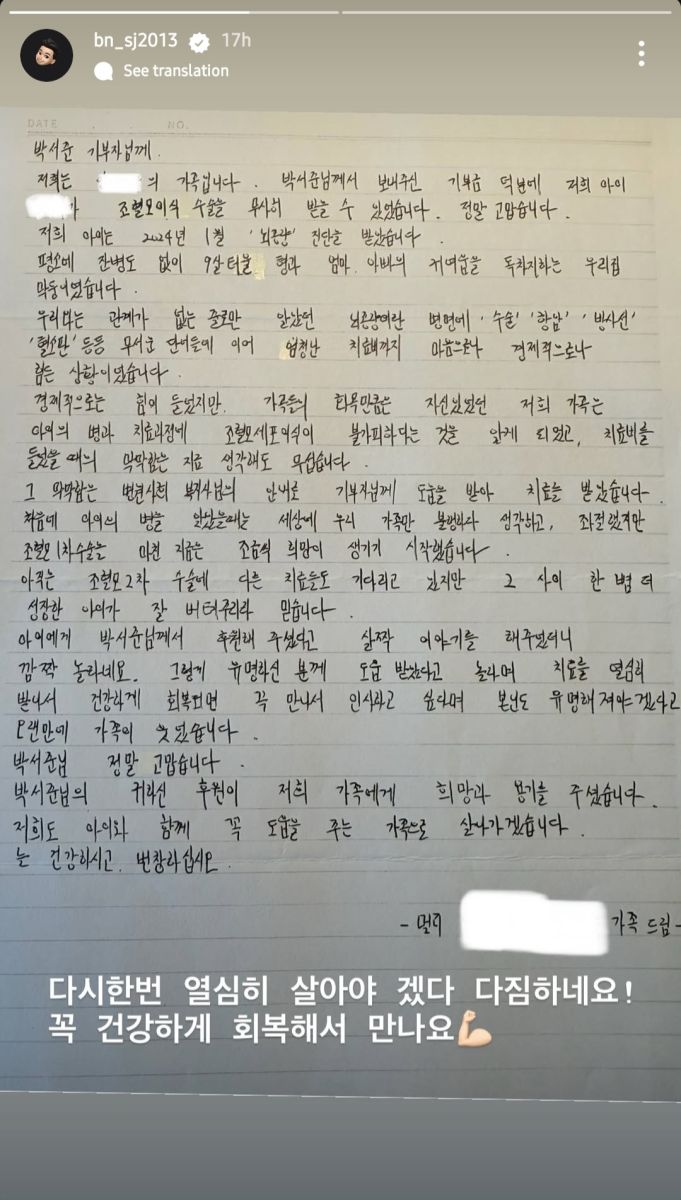 bn_sj2013 17h
See translation
DATE . . NO.
박서준 기부자님께.
저희는 의 가족입니다. 박서준님께서 보내주신 기부금 덕분에 저희 아이
가 조혈모이식 수술을 무사히 받을 수 있었습니다. 정말 고맙습니다.
저희 아이는 2024년 1월 '뇌종양' 진단을 받았습니다.
평소에 잔병도 없이 9살터울 형과 엄마. 아빠의 귀여움을 독차지하는 우리집
막둥이였습니다.
우리와는 관계가 없는 줄로만 알았던 뇌종양이란 병명에 '수술' '항암' '방사선'
'혈소판' 등등 무서운 단어들에 이어 엄청난 치료비까지 마음으로나 경제적으로나
힘든 상황이었습니다.
경제적으로는 힘이 들었지만. 가족들의 화목만큼은 자신있었던 저희 가족은
아이의 병과 치료과정에 조혈모세포이식이 불가피하다는 것을 알게 되었고, 치료비를
들었을 때의 막막함은 지금 생각해도 무섭습니다.
그 막막함은 병원사회 복지사님의 안내로 기부자님께 도움을 받아 치료를 받았습니다.
처음에 아이의 병을 알았을때는 세상에 우리 가족만 불행하다 생각하고, 좌절했지만
조혈모1차수술을 마친 지금은 조금씩 희망이 생기기 시작했습니다.
아직은 조혈모2차 수술에 다른 치료들도 기다리고 있지만 그 사이 한 뼘 더
성장한 아이가 잘 버텨주리라 믿습니다.
아이에게 박서준님께서 후원해 주셨다고 살짝 이야기를 해주었더니
깜짝 놀라네요. 그렇게 유명하신 분께 도움 받았다고 놀라며 치료를 열심히
받아서 건강하게 회복되면 꼭 만나서 인사하고 싶다며 본인도 유명해져야겠다고
오랜만에 가족이 웃었습니다.
박서준님 정말 고맙습니다.
박서준님의 귀하신 후원이 저희 가족에게 희망과 용기를 주셨습니다.
저희도 아이와 함께 꼭 도움을 주는 가족으로 살아가겠습니다.
늘 건강하시고. 번창하십시오.
- 멀리 가족 드림-
다시한번 열심히 살아야 겠다 다짐하네요!
꼭 건강하게 회복해서 만나요💪🏻